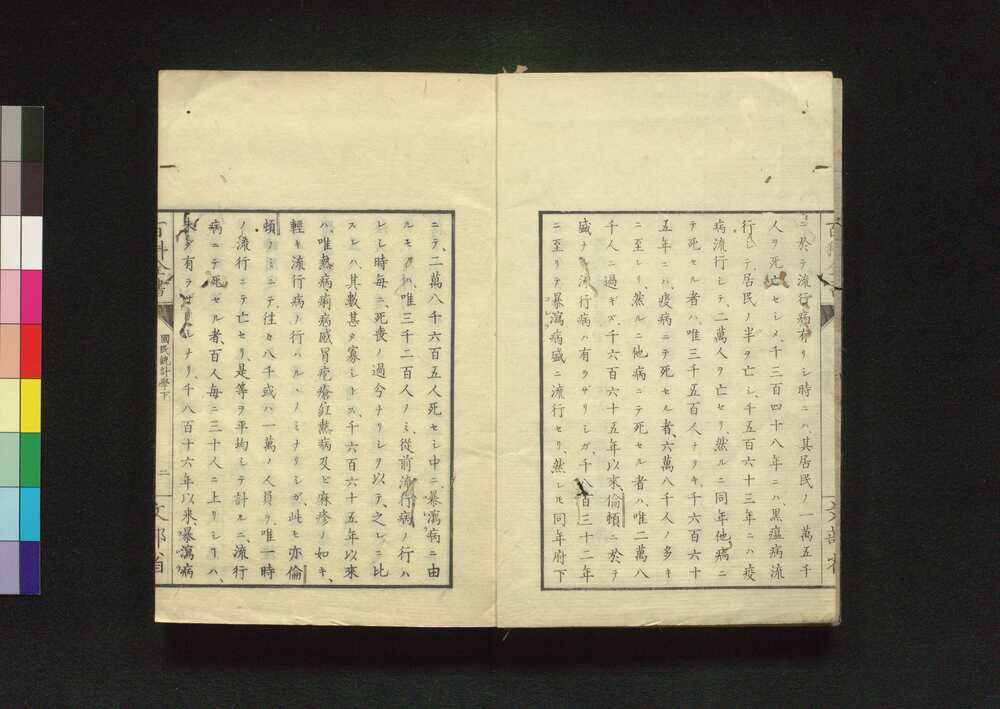 ニ於テ流行病有リシ時ニハ、其居民ノ一萬五千
人ヲ死亡セシメ、千三百四十八年ニハ黒瘟病流
行シテ居民ノ半ヲ亡シ、千五百六十三年ニハ疫
病流行シテ、二萬人ヲ亡セリ、然ルニ同年他病ニ
テ死セル者ハ、唯三千五百人ナリキ、千六百六十
五年ニハ、疫病ニテ死セル者、六萬八千人ノ多キ
ニ至レリ、然ルニ他病ニテ死セル者ハ、唯二萬八
千人ニ過ギズ、千六百六十五年以來、倫頓ニ於テ
盛ナル流行病ハ有ラザリシガ、千八百三十二年
ニ至リテ暴瀉病盛ニ流行セリ、然レ𪜈同年府下
ニテ、二萬八千六百五人死セシ中ニ、暴瀉病ニ由
ルモノハ、唯三千二百人ノミ、從前流行病ノ行ハ
レシ時毎ニ、死喪ノ過今ナリシヲ以テ、之レニ比
スレハ、其數甚タ寡シトス、千六百六十五年以來
ハ、唯熱病、痢病、感冒、疱瘡、紅熱病及ビ麻疹ノ如キ、
輕キ流行病ノ行ハルヽノミナリシガ、此モ亦倫
頓ノミニテ、往々八千或ハ一萬ノ人員ヲ、唯一時
ノ流行ニテ亡セリ、是等ヲ平均シテ計ルニ、流行
病ニテ死セル者、百人毎ニ三十人ニ上リシ
未タ有ラザルナリ、千八百十六年以來、暴瀉病
百科全書
國民統計學下
二
文部省